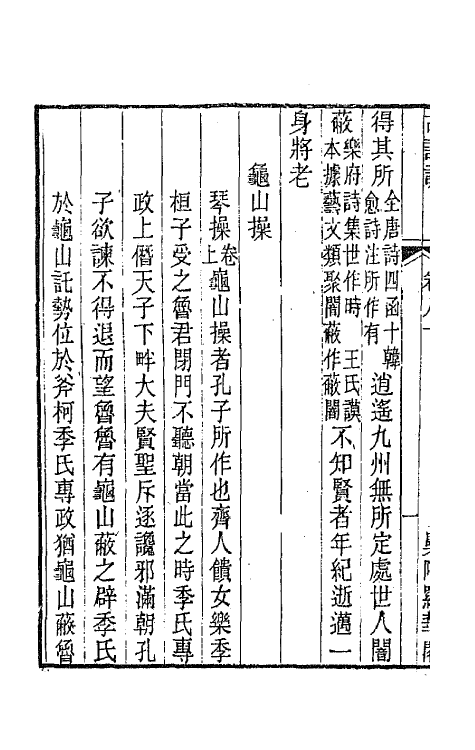 得其所全唐詩四函十韓愈詩注所作有逍遙九州無所定處世人闇
蔽樂府詩集世作時 王氏謨本據藝文類聚闇蔽作蔽闇不知賢者年紀逝邁一
身將老
龜山操
琴操卷上龜山操者孔子所作也齊人饋女樂季
桓子受之魯君閉門不聽朝當此之時季氏專
政上僭天子下畔大夫賢聖斥逐讒邪滿朝孔
子欲諫不得退而望魯魯有龜山蔽之辟季氏
於龜山託勢位於斧柯季氏專政猶龜山蔽魯